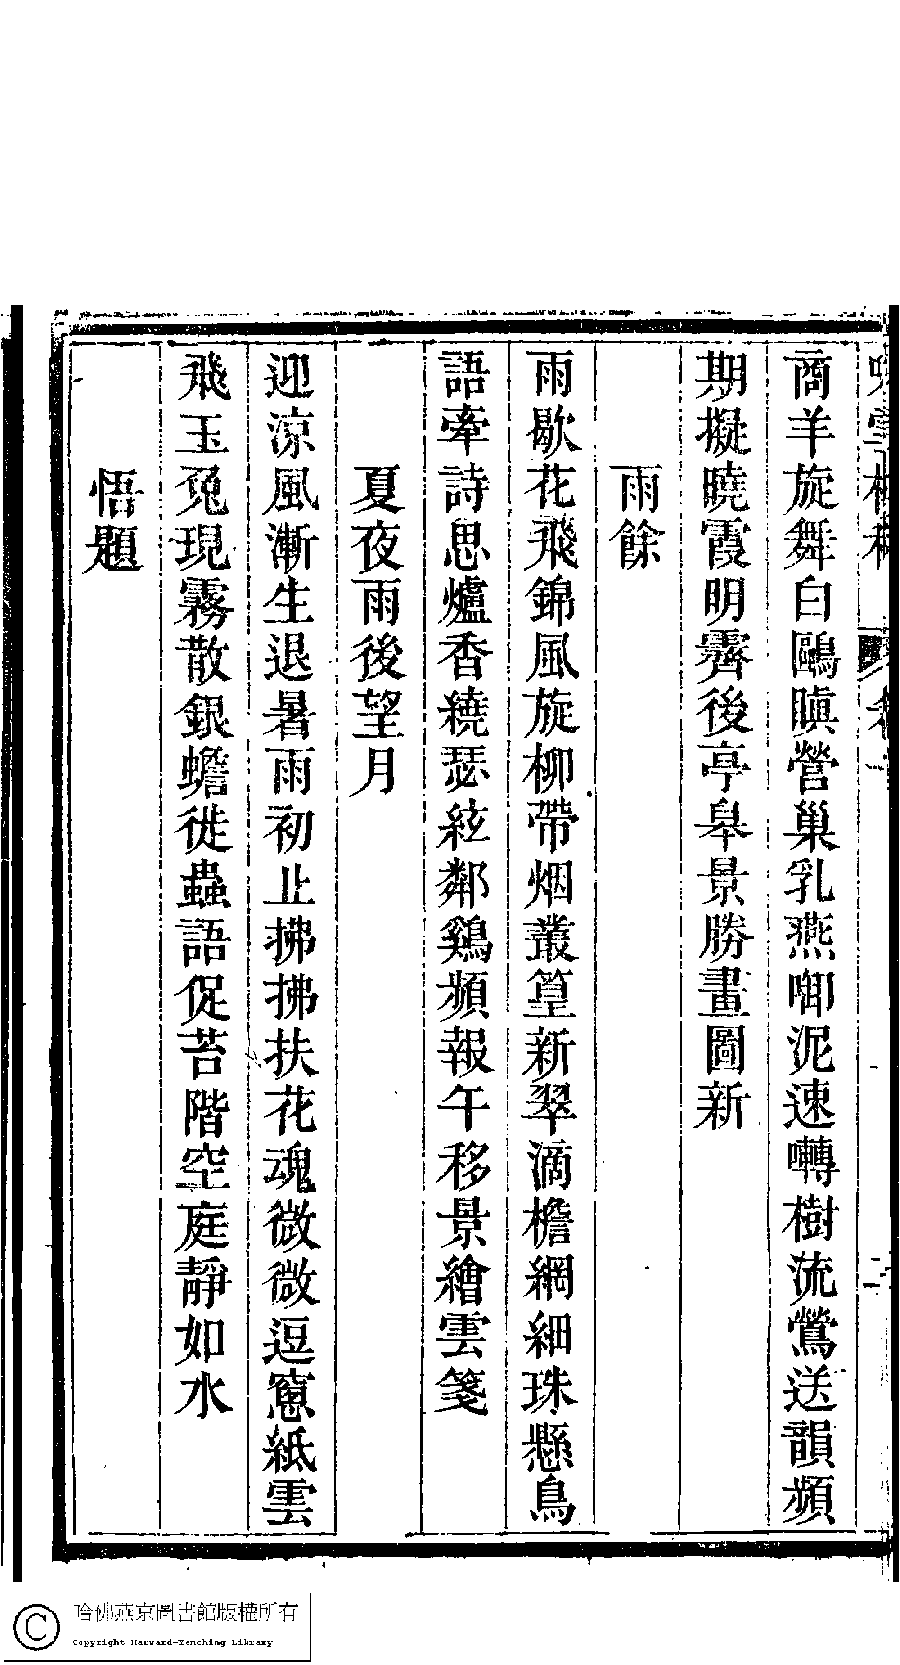 商羊旋舞白鷗瞋營巢乳燕啣泥速囀樹流鶯送韻頻
期擬曉霞明霽後亭皋景勝畫圖新
雨餘
雨歇花飛錦風旋柳帶烟叢篁新翠滴檐網細珠懸鳥
語牽詩思爐香繞瑟絃鄰鷄頻報午移景繪雲箋
夏夜雨後望月
迎涼風漸生退暑雨初止拂拂扶花魂微微逗窻紙雲
飛玉兔現霧散銀蟾徙蟲語促苔階空庭靜如水
悟題
哈佛燕京圖書館版權所有
Copyright Harvard-Yenching Library